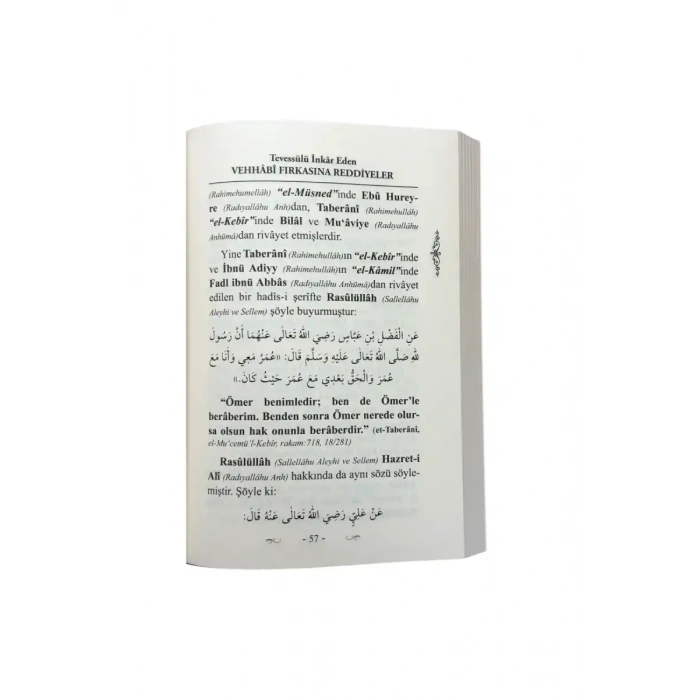 Tevessülü İnkâr Eden
VEHHÂBÎ FIRKASINA REDDİYELER
(Rahimehumellâh) “el-Müsned”inde Ebû Hurey-
re (Radıyallâhu Anh)dan, Taberânî (Rahimehullâh)
“el-Kebîr”inde Bilâl ve Mu‘âviye (Radıyallâhu
Anhümâ)dan rivâyet etmişlerdir.
Yine Taberânî (Rahimehullâh)ın “el-Kebîr”inde
ve İbnü Adiyy (Rahimehullâh)ın “el-Kâmil”inde
Fadl ibnü Abbâs (Radıyallâhu Anhümâ)dan rivâyet
edilen bir hadîs-i şerîfte Rasûlüllâh (Sallellâhu
Aleyhi ve Sellem) şöyle buyurmuştur:
عَنِ الْفَضْلِ بْنِ عَبَّاسٍ رَضِيَ اللهُ تَعَالَى عَنْهُمَا أَنَّ رَسُولَ
للهِ صَلَّى اللهُ تَعَالَى عَلَيْهِ وَسَلَّمَ قَالَ: «عُمَرُ مَعِي وَأَنَا مَعَ
عُمَرَ وَالْحَقُّ بَعْدِي مَعَ عُمَرَ حَيْثُ كَانَ.»
“Ömer benimledir; ben de Ömer’le
berâberim. Benden sonra Ömer nerede olur-
sa olsun hak onunla berâberdir.” (et-Taberânî,
el-Mu‘cemü’l-Kebîr, rakam:718, 18/281)
Rasûlüllâh (Sallellâhu Aleyhi ve Sellem) Hazret-i
Alî (Radıyallâhu Anh) hakkında da aynı sözü söyle-
miştir. Şöyle ki:
عَنْ عَلِيٍّ رَضِيَ اللهُ تَعَالَى عَنْهُ قَالَ:
- 57 -